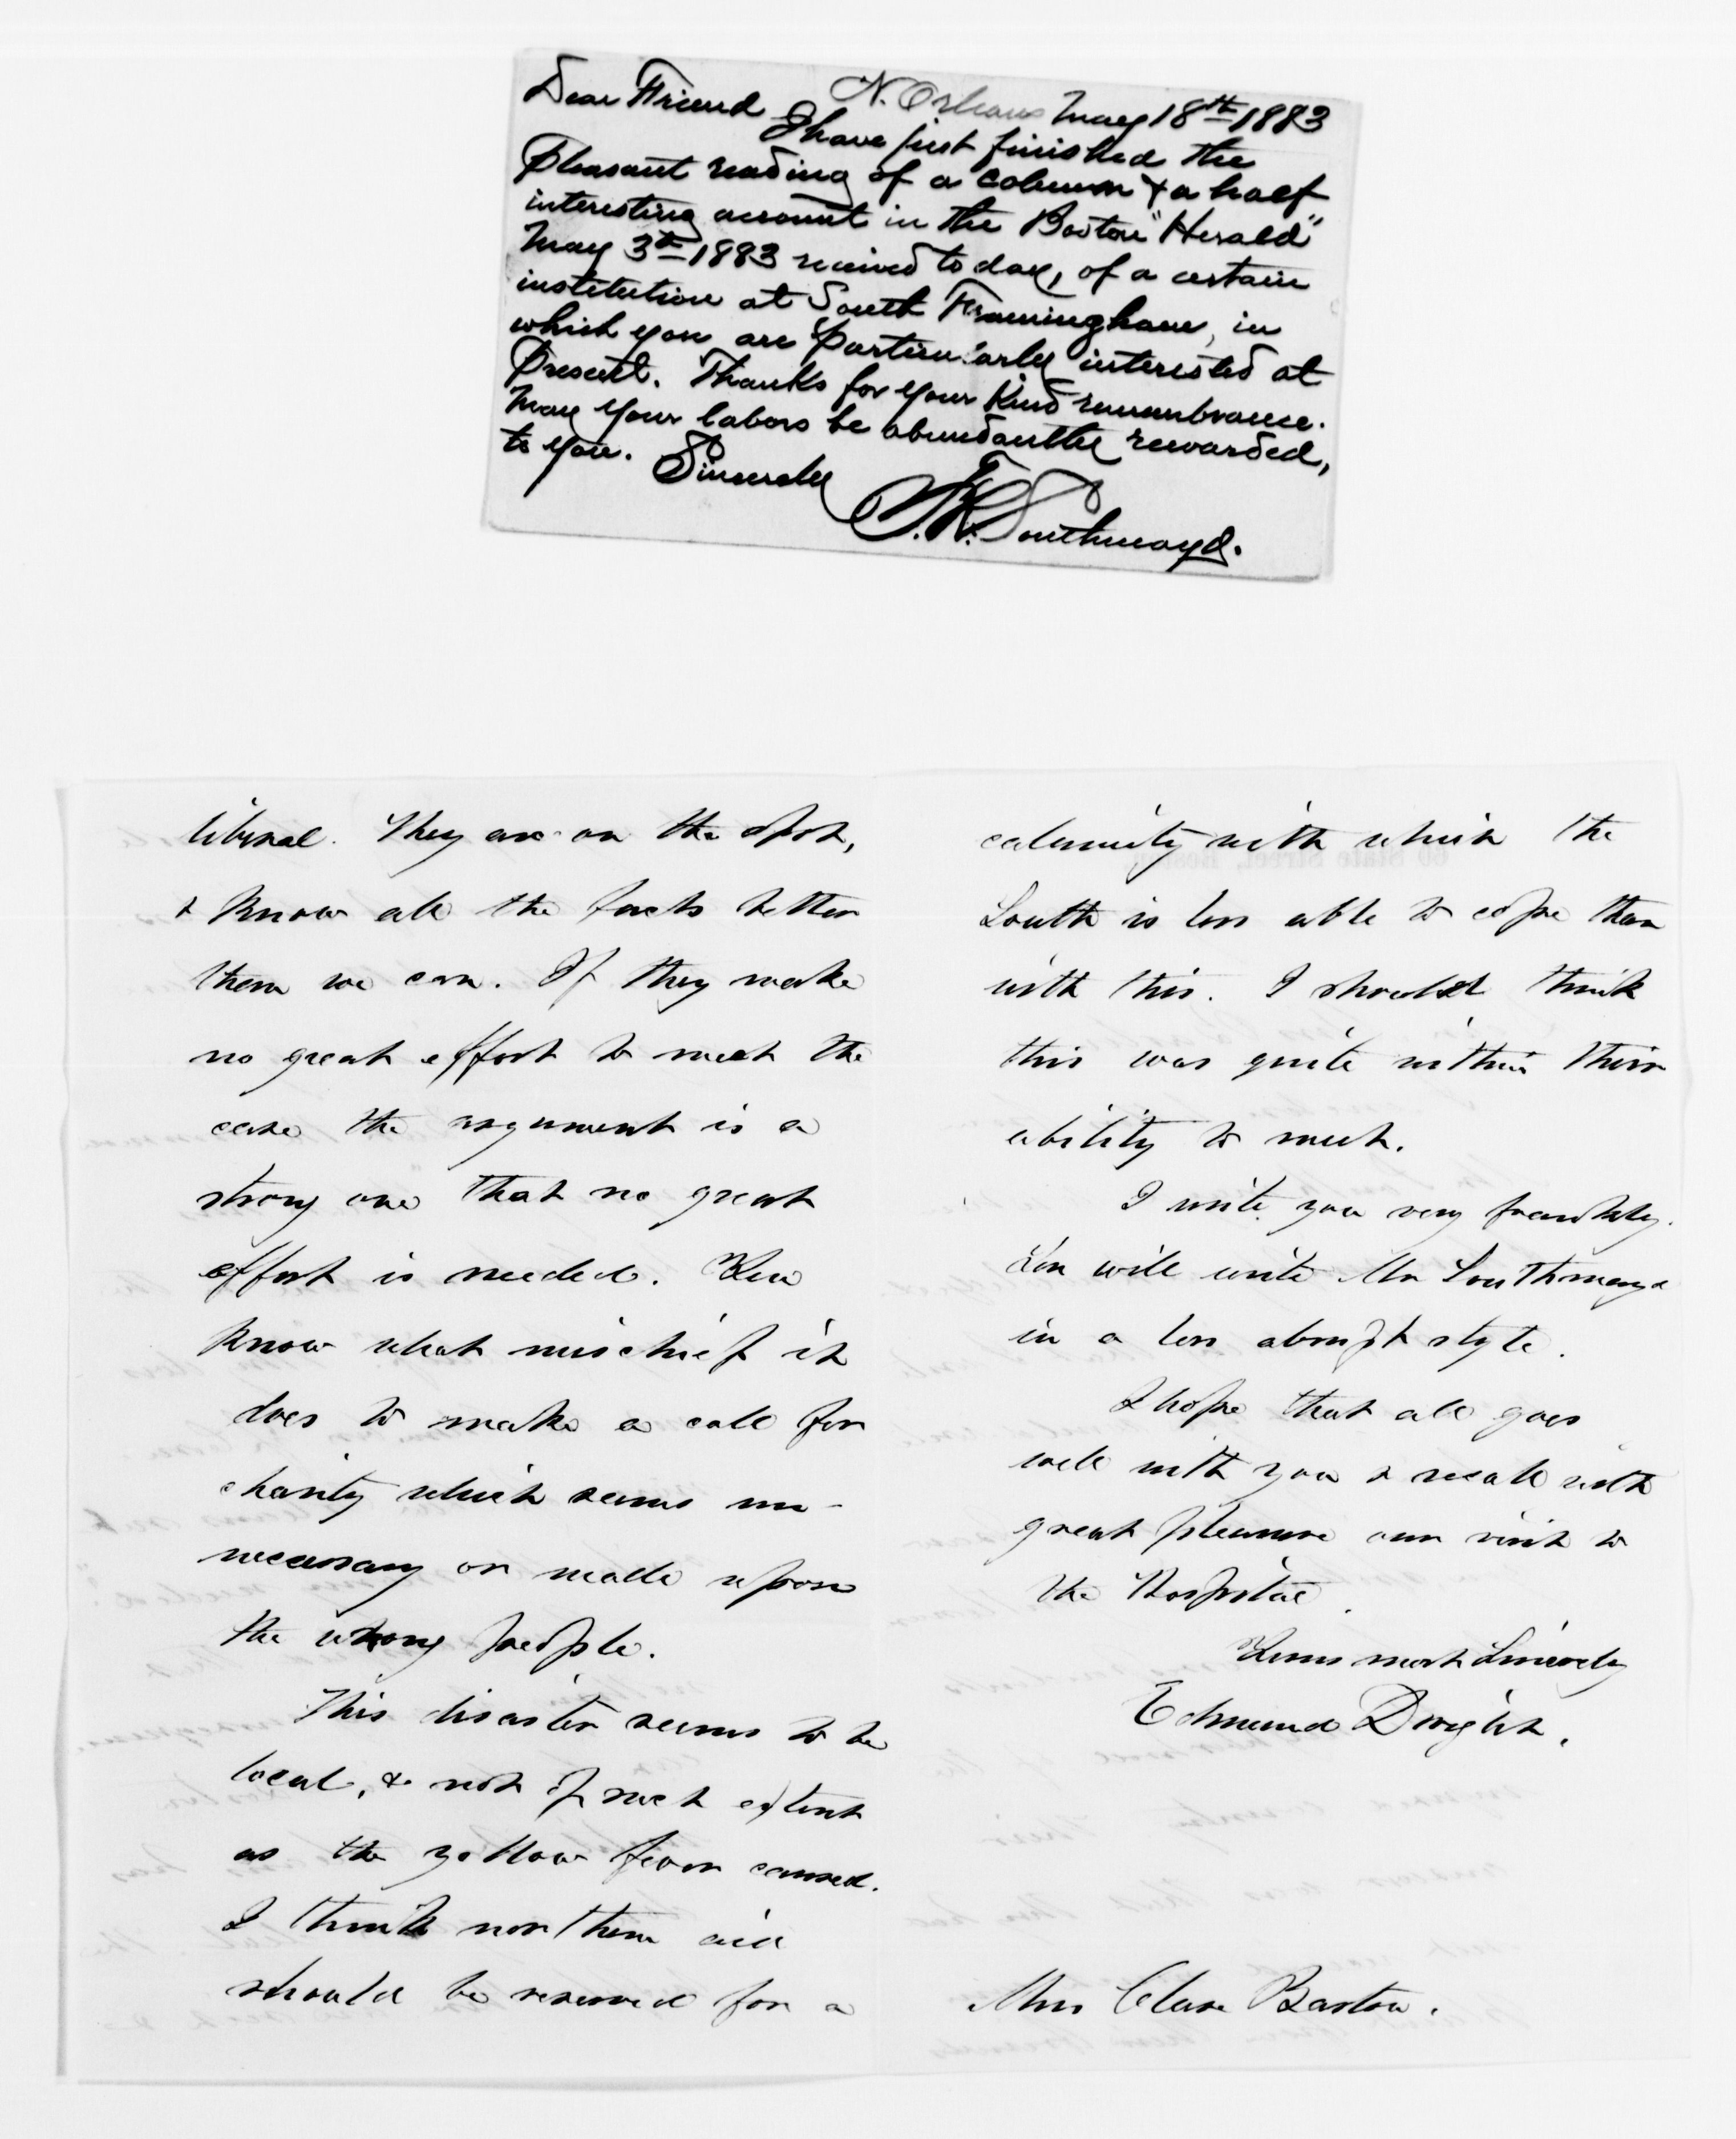 N. Orleans May 18th 1883
Dear Friend
I have just finished the
pleasant reading of a column & a half
interesting account in the Boston "Herald"
May 3th 1883 received to day, of a certain
institution at South Framingham, in
which you are particularly interested at
present. Thanks for your kind remembrance.
May your labors be abundantly rewarded,
to you. Sincerely
F.R. Southmayd.
liberal. They are on the spot,
& know all the facts better
than we can. If they make
no great effort to meet the
case the argument is a
strong one that no great
effort is needed. You
know what mischief it
does to make a call for
charity which seems un-
necessary or made upon
the wrong people.
This disaster seems to be
local, & not of such extent
as the yellow fever caused.
I think northern aid
should be reserved for a
calamity with which the
South is less able to cope than
with this. I should think
this was quite within their
ability to meet.
I write you very frankly.
You will write Mr Southmayd
in a less abrupt style.
I hope that all goes
well with you & recall with
great pleasure our visit to
the Hospital.
Yours most Sincerely
Edmund Dwight.
Miss Clara Barton.